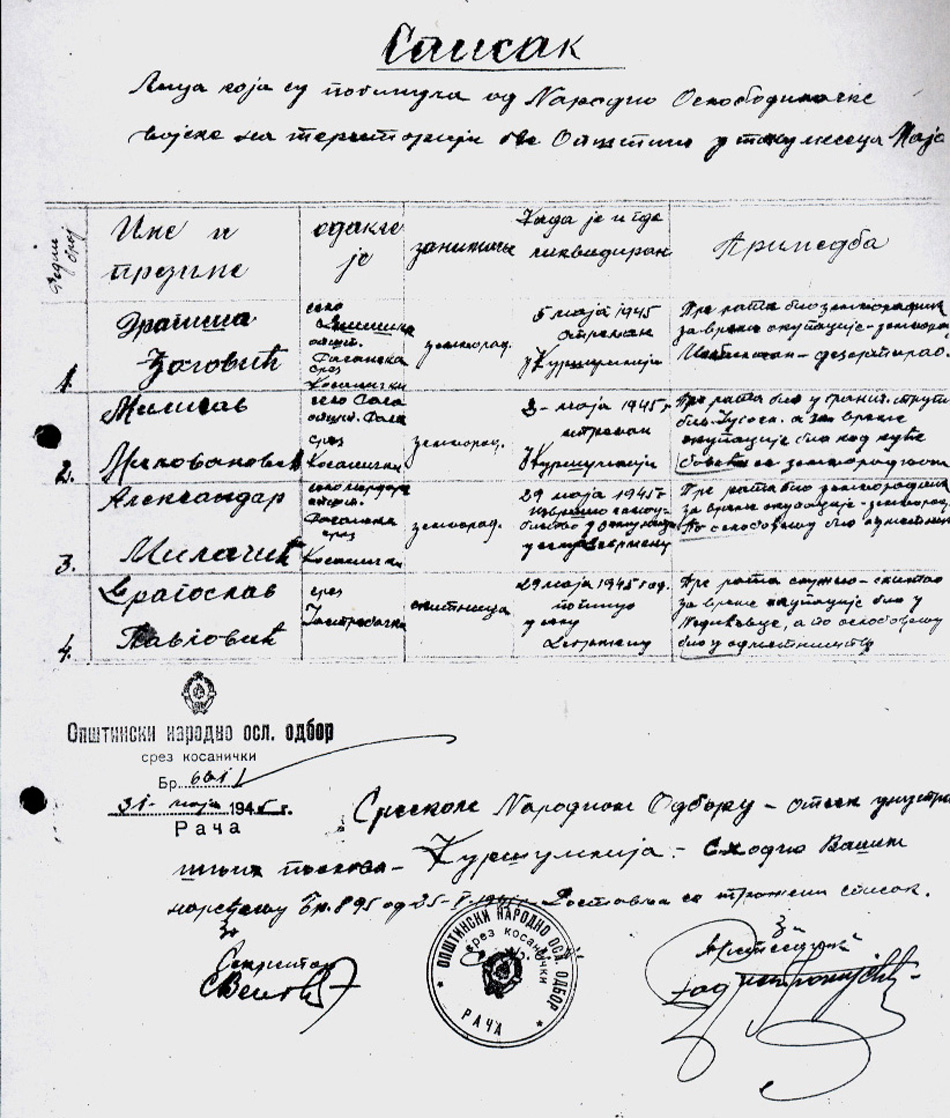 Списак
Лица која су погинула од Народно Ослободилачке
војске на територији ове Општине у току месеца Маја
Редни број
Име и презиме
одакле је
занимање
Када је и где ликвидиран
Примедба
1.
Драгиша
Зоговић
село
општ.
срез
Косанички
земљорад.
5 маја 1945
стрељан
у Куршумлији
Пре рата био земљорадник
за време окупације - земљорад
дезертирао.
2.
Милисав
Миловановић
село Рача
општ. Рача
срез
Косанички
земљорад.
3- маја 1945 г
стрељан
у Куршумлији
Пре рата био у гранич. трупи
а за време
окупације био код куће
бавећи се земљорадњом
3.
Александар
Милачић
општ.
срез
Косанички
земљорад.
29 маја 1945 г
извршио самоу-
биство у
у
Пре рата био земљорадник
за време окупације - земљорад
По ослобођењу био одметник
4.
Драгослав
Павловић
срез
Јастребачки
скитница
29 маја 1945 год.
погинуо
у селу
Пре рата служио - скитао
за време окупације био у
Недићевце, а по ослобођењу
био у одметништву
Општински народно осл. одбор
срез косанички
Бр. 661/
31- маја 1945 г.
Рача
Среском Народном Одбору - отсек унутра
шњих послова - Куршумлија. - Сходно Вашем
наређењу Бр. 895 од 25-V-1945 г. Доставља се тражени списак.
За
Секретар
За
ОПШТИНСКИ НАРОДНО ОСЛ. ОДБОР
срез косанички
РАЧА